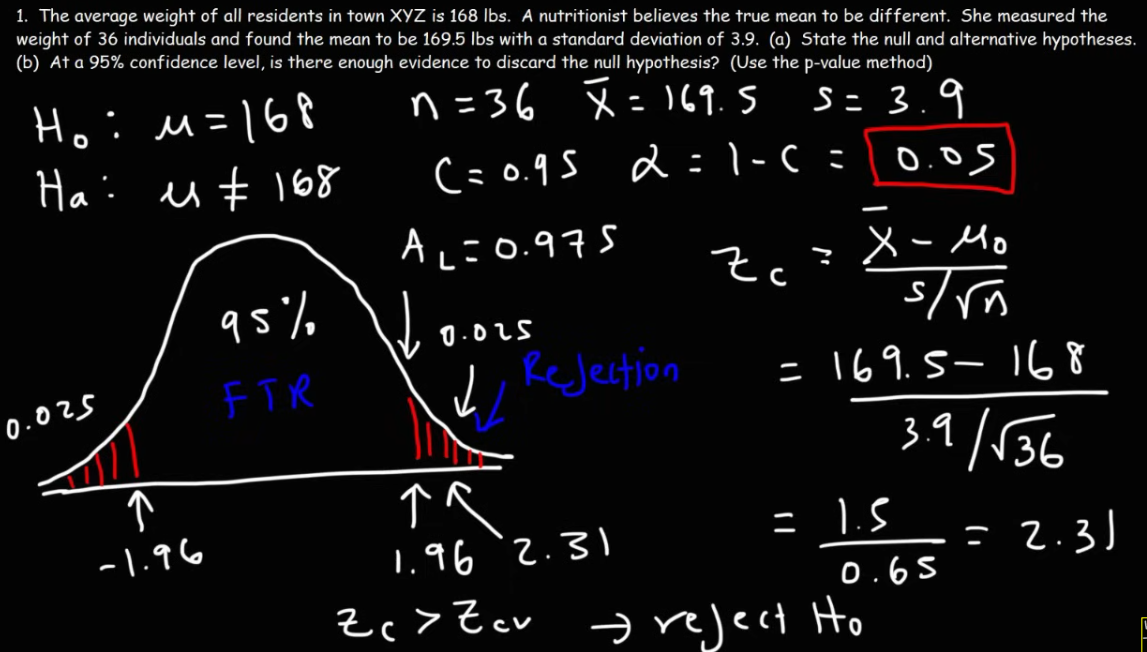 1. The average weight of all residents in town XYZ is 168 lbs. A nutritionist believes the true mean to be different. She measured the
weight of 36 individuals and found the mean to be 169.5 lbs with a standard deviation of 3.9. (a) State the null and alternative hypotheses.
(b) At a 95% confidence level, is there enough evidence to discard the null hypothesis? (Use the p-value method)
H₀: μ = 168
Ha: μ ≠ 168
n = 36 x̄ = 169.5 s = 3.9
C = 0.95 α = 1 - C = 0.05
A_L = 0.975
0.025
Rejection
95%
FTR
0.025
-1.96
1.96
2.31
Z_c = (x̄ - μ₀) / (s/√n)
= (169.5 - 168) / (3.9/√36)
= 1.5 / 0.65 = 2.31
Z_c > Z_cv → reject H₀